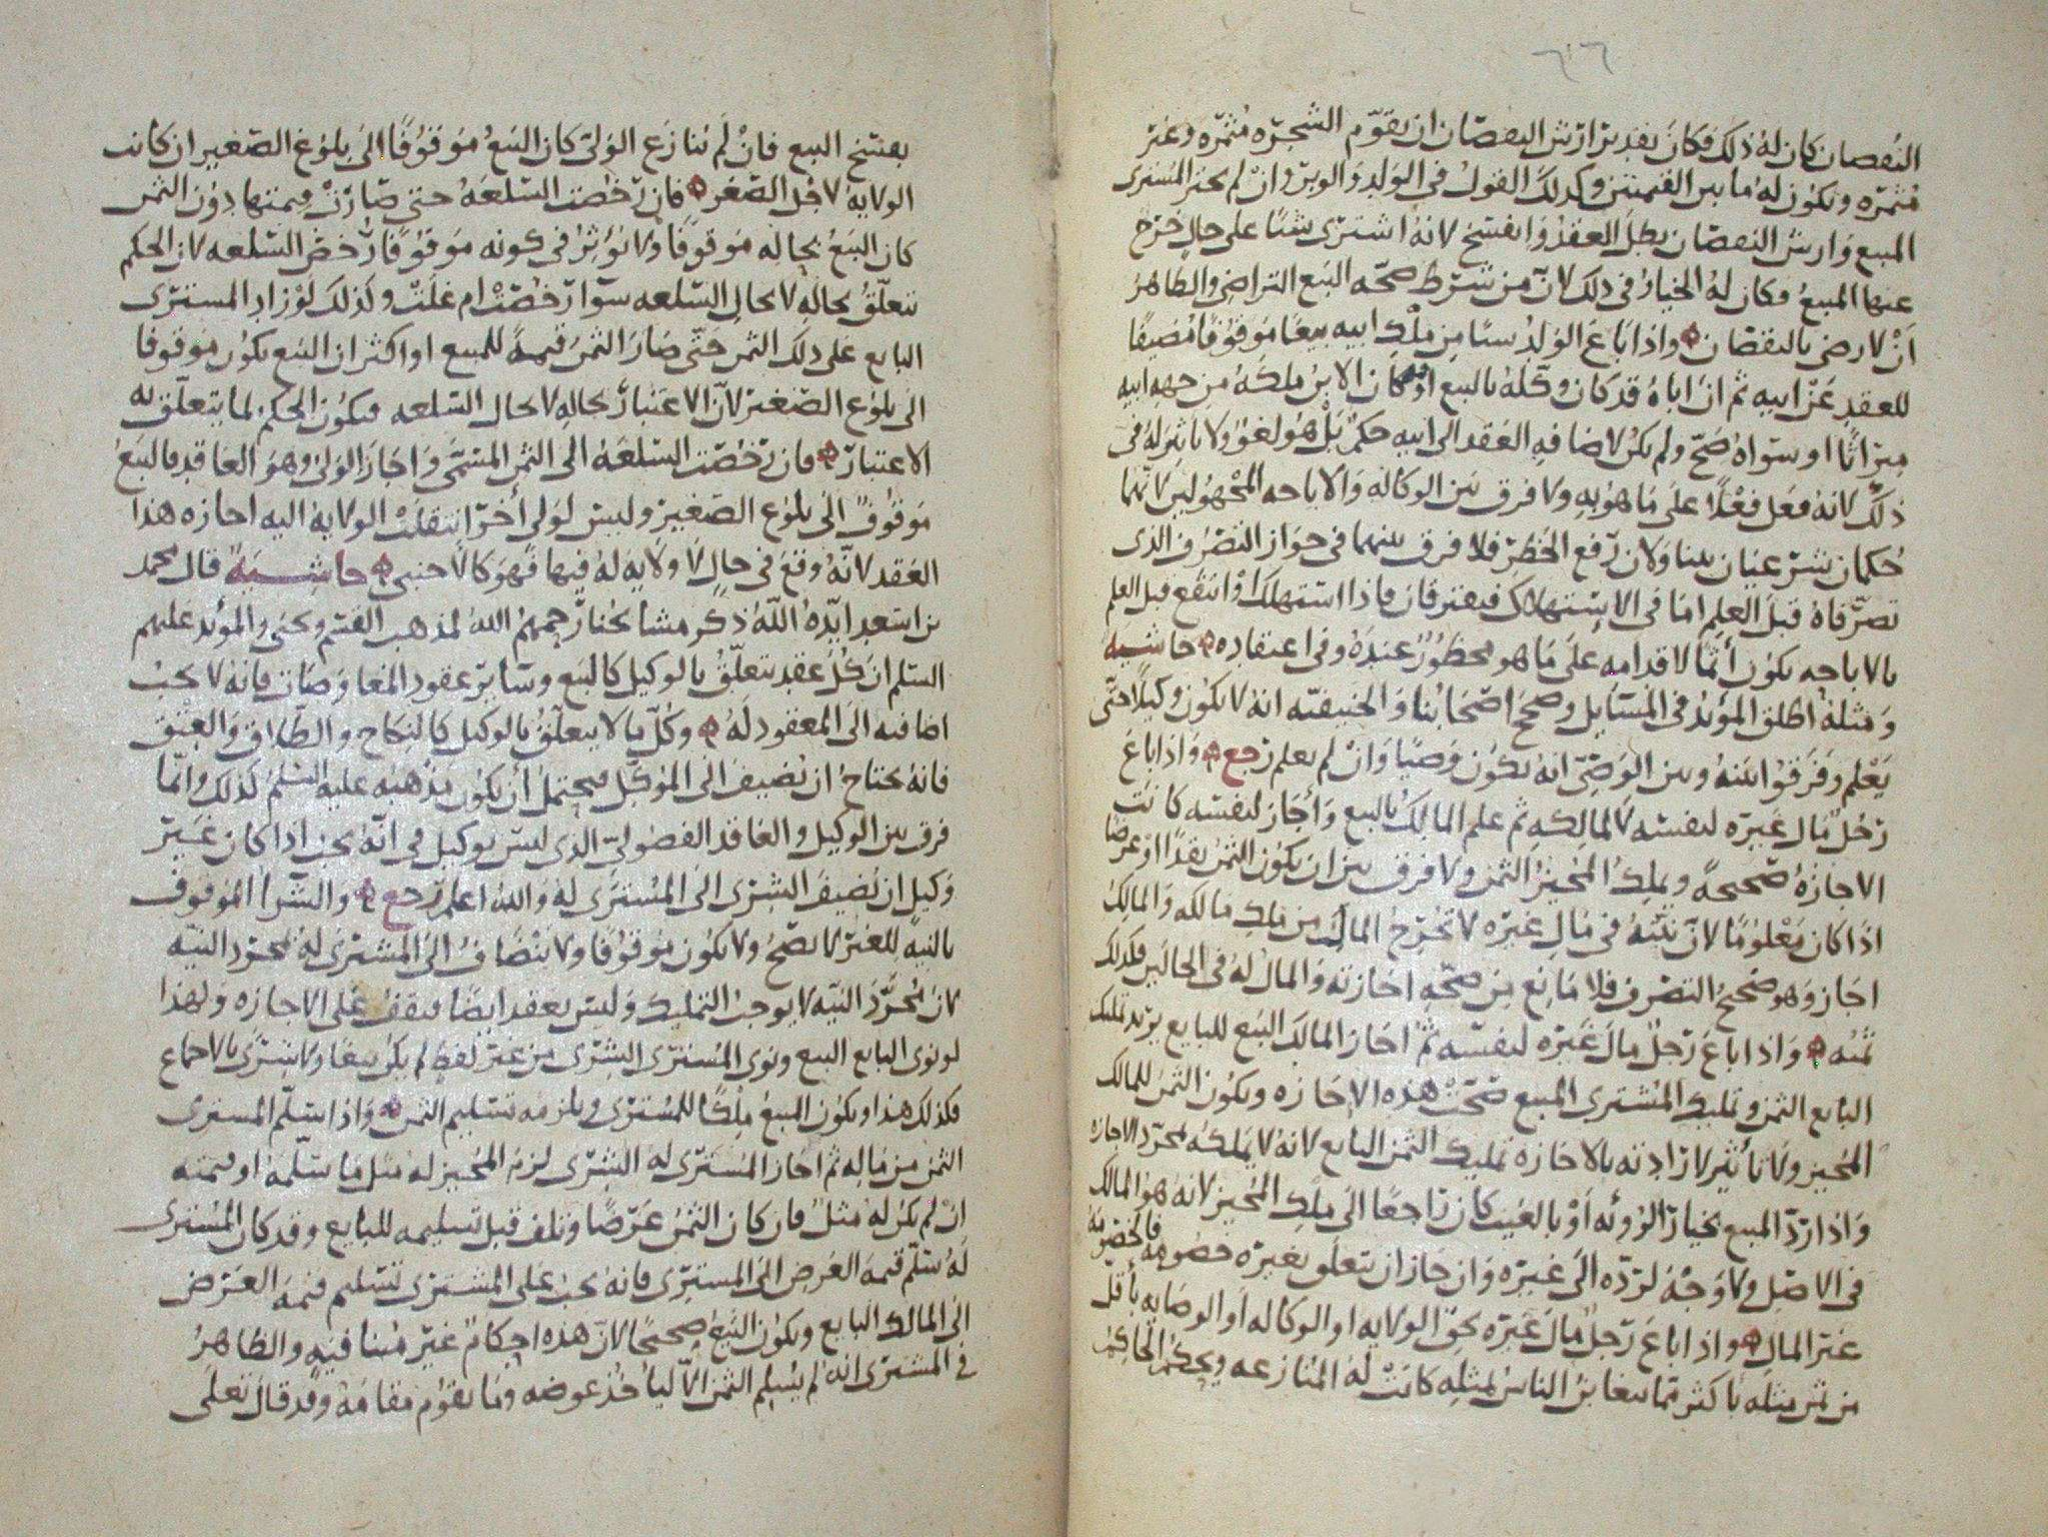 ٦٢٦
النقصان كان له ذلك فكان تقدير ارش النقصان ان يقوّم الشجره مُثمره وغير
مُثمره ويكون له ما بين القيمتين وكذلك القول في الولد والوبر وان لم يختر المشترى
المبيع وارش النقصان بطل العقد وانفسخ لانه اشترى شيئا على حال خرج
عنها المبيع فكان له الخيار في ذلك لان من شرط صحّه البيع التراضى والظاهر
ان لا رضى بالنقصان واذا باع الولد شيئا من ملك ابيه بيعا موقوفا مضيفا
للعقد عن ابيه ثم ان اباه قد كان وكله بالبيع او كان الابن ملكه من جهه ابيه
ميراثا او سواه صح ولم يكن لاضافه العقد الى ابيه حكم بل هو لغو ولا تاثير له في
ذلك لانه فعل فعلا على ما هو به ولا فرق بين الوكاله والاباحه المجهولين لانهما
حكمان شرعيان بينا ولان رفع الحظر فلا فرق بينهما في جواز التصرف الذى
تصرفاه قبل العلم اما في الاستهلاك فيفترقان فاذا استهلك او انتفع قبل العلم
بالاباحه يكون اثما لاقدامه على ما هو محظور عنده وفى اعتقاده حاشيه
ومثله اطلق المؤيد في المسايل وصحح اصحابنا والحنيفيه انه لا يكون وكيلا حتى
يعلم وفرقوا بينه وبين الوصى انه يكون وصيا وان لم يعلم رجع واذا باع
رجل مال غيره لنفسه لا لمالكه ثم علم المالك بالبيع واجاز لنفسه كانت
الاجازه صحيحه ويملك المجيز الثمن ولا فرق بين ان يكون الثمن نقدا او عرضا
اذا كان معلوما لان نيته في مال غيره لا تخرج المال من ملك مالكه والمالك
اجاز وهو صحيح التصرف فلا مانع من صحّه اجازته والمال له في الحالين فكذلك
ثمنه واذا باع رجل مال غيره لنفسه ثم اجاز المالك البيع للبايع يريد تمليك
البايع الثمن وتمليك المشترى المبيع صحت هذه الاجازه ويكون الثمن للمالك
المجيز ولا تاثير لارادته بالاجازه تمليك الثمن البايع لانه لا يملكه بمجرد الاجازه
واذا ردّ المبيع بخيار الرؤيه او بالعيب كان راجعا الى ملك المجيز لانه هو المالك
في الاصل ولا وجه لردّه الى غيره وان جاز ان تتعلق بغيره خصومه فالخصومه
غير المال واذا باع رجل مال غيره بحق الولايه او الوكاله او الوصايه باقل
من ثمن مثله باكثر مما يتغابن الناس بمثله كانت له المنازعه ويحكم الحاكم
بفسخ البيع فان لم ينازع الولى كان البيع موقوفا الى بلوغ الصغير ان كانت
الولايه لاجل الصغر فان رخصت السلعه حتى صارت قيمتها دون الثمن
كان البيع بحاله موقوفا ولا يؤثر في كونه موقوفا رخص السلعه لان الحكم
تتعلق بحاله لا بحال السلعه سوا رخصت ام غلت وكذلك لو زاد المشترى
البايع على ذلك الثمن حتى صار الثمن قيمه للمبيع او اكثر ان البيع يكون موقوفا
الى بلوغ الصغير لان الاعتبار بحاله لا بحال السلعه فيكون الحكم لما يتعلق به
الاعتبار فان رخصت السلعه الى الثمن المسمى واجاز الولى وهو العاقد فالبيع
موقوف الى بلوغ الصغير وليس لولى اخر انتقلت الولايه اليه اجازه هذا
العقد لانه وقع في حال لا ولايه له فيها فهو كالاجنبى حاشيه قال محمد
بن اسعد ايده الله ذكر مشايخنا رحمهم الله لمذهب القسم ويحيى والمؤيد عليهم
السلم ان كل عقد يتعلق بالوكيل كالبيع وساير عقود المعاوضات فانه لا يجب
اضافته الى المعقود له وكل ما لا يتعلق بالوكيل كالنكاح والطلاق والعتق
فانه يحتاج ان يضيف الى الموكل فيحتمل ان يكون مذهبه عليه السلم كذلك وانما
فرق بين الوكيل والعاقد الفضولى الذى ليس بوكيل في انه يجب اذا كان غير
وكيل ان يضيف الشرى الى المشترى له والله اعلم رجع والشرا الموقوف
بالنيه للغير لا يصح ولا يكون موقوفا ولا ينضاف الى المشترى له بمجرد النيه
لان مجرد النيه لا يوجب التمليك وليس بعقد ايضا فيقف على الاجازه ولهذا
لو نوى البايع البيع ونوى المشترى الشرى من غير لفظ لم يكن بيعا ولا شرى بالاجماع
فكذلك هذا ويكون المبيع ملكا للمشترى ويلزمه تسليم الثمن واذا سلّم المشترى
الثمن من ماله ثم اجاز المشترى له الشرى لزم المجيز له مثل ما سلمه او قيمته
ان لم يكن له مثل فان كان الثمن عرضا وتلف قبل تسليمه للبايع وقد كان المشترى
له سلّم قيمه العرض الى المشترى فانه يجب على المشترى تسليم قيمه العرض
الى المالك البايع ويكون البيع صحيحا لان هذه احكام غير متنافيه والظاهر
في المشترى انه لم يسلم الثمن الا لياخذ عوضه وما يقوم مقامه وقد قال تعلى